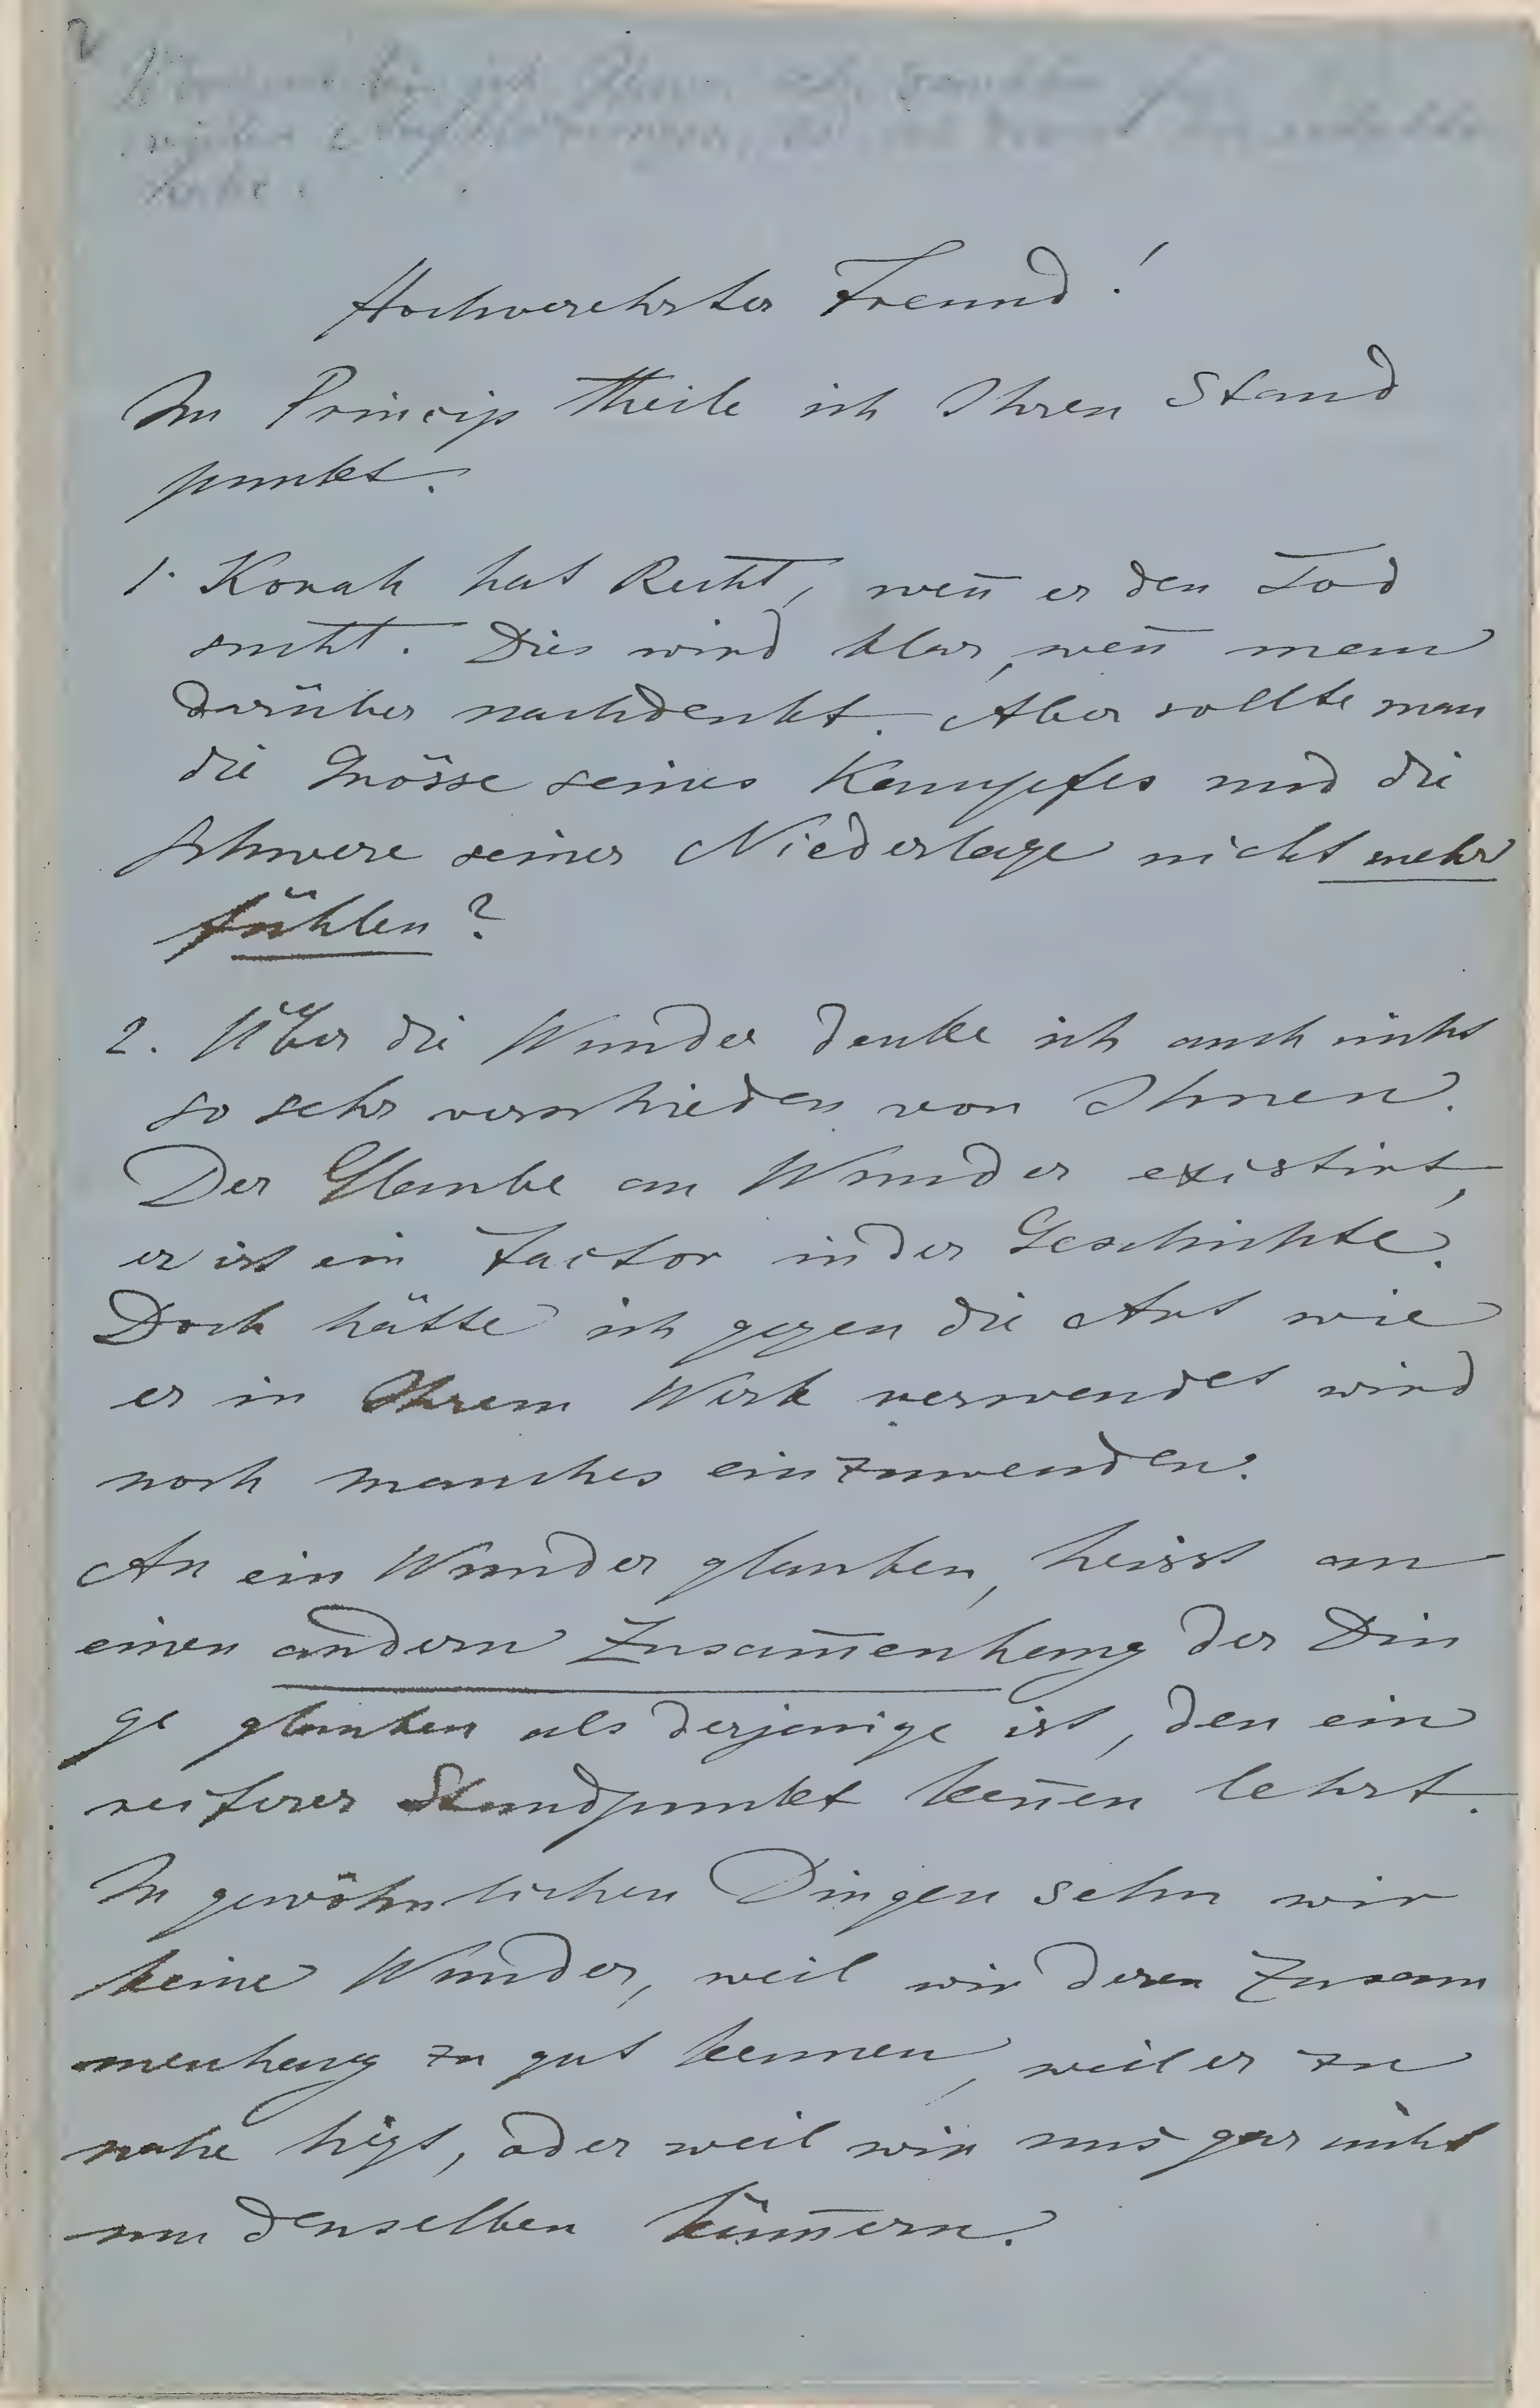 2
habe.
Hochverehrter Freund!
Im Princip theile ich Ihren Stand
punkt.
1. Korah hat Recht, wen̄ er den Tod
sucht. Dies wird klar, wen̄ man
darüber nachdenkt. Aber sollte man
die Grösse seines Kampfes und die
Schwere seiner Niederlage nicht mehr
fühlen?
2. Über die Wunder denke ich auch nicht
so sehr verschieden von Ihnen.
Der Glaube an Wunder existirt,
er ist ein Factor in der Geschichte.
Doch hätte ich gegen die Art wie
er in Ihrem Werk verwendet wird
noch manches einzuwenden.
An ein Wunder glauben, heisst an
einen andern Zusam̄enhang der Din
ge glauben als derjenige ist, den ein
reiferer Standpunkt ken̄en lehrt.
In gewöhnlichen Dingen sehn wir
keine Wunder, weil wir deren Zusam
menhang zu gut kennen, weil er zu
nahe liegt, oder weil wir uns gar nicht
um denselben küm̄ern.